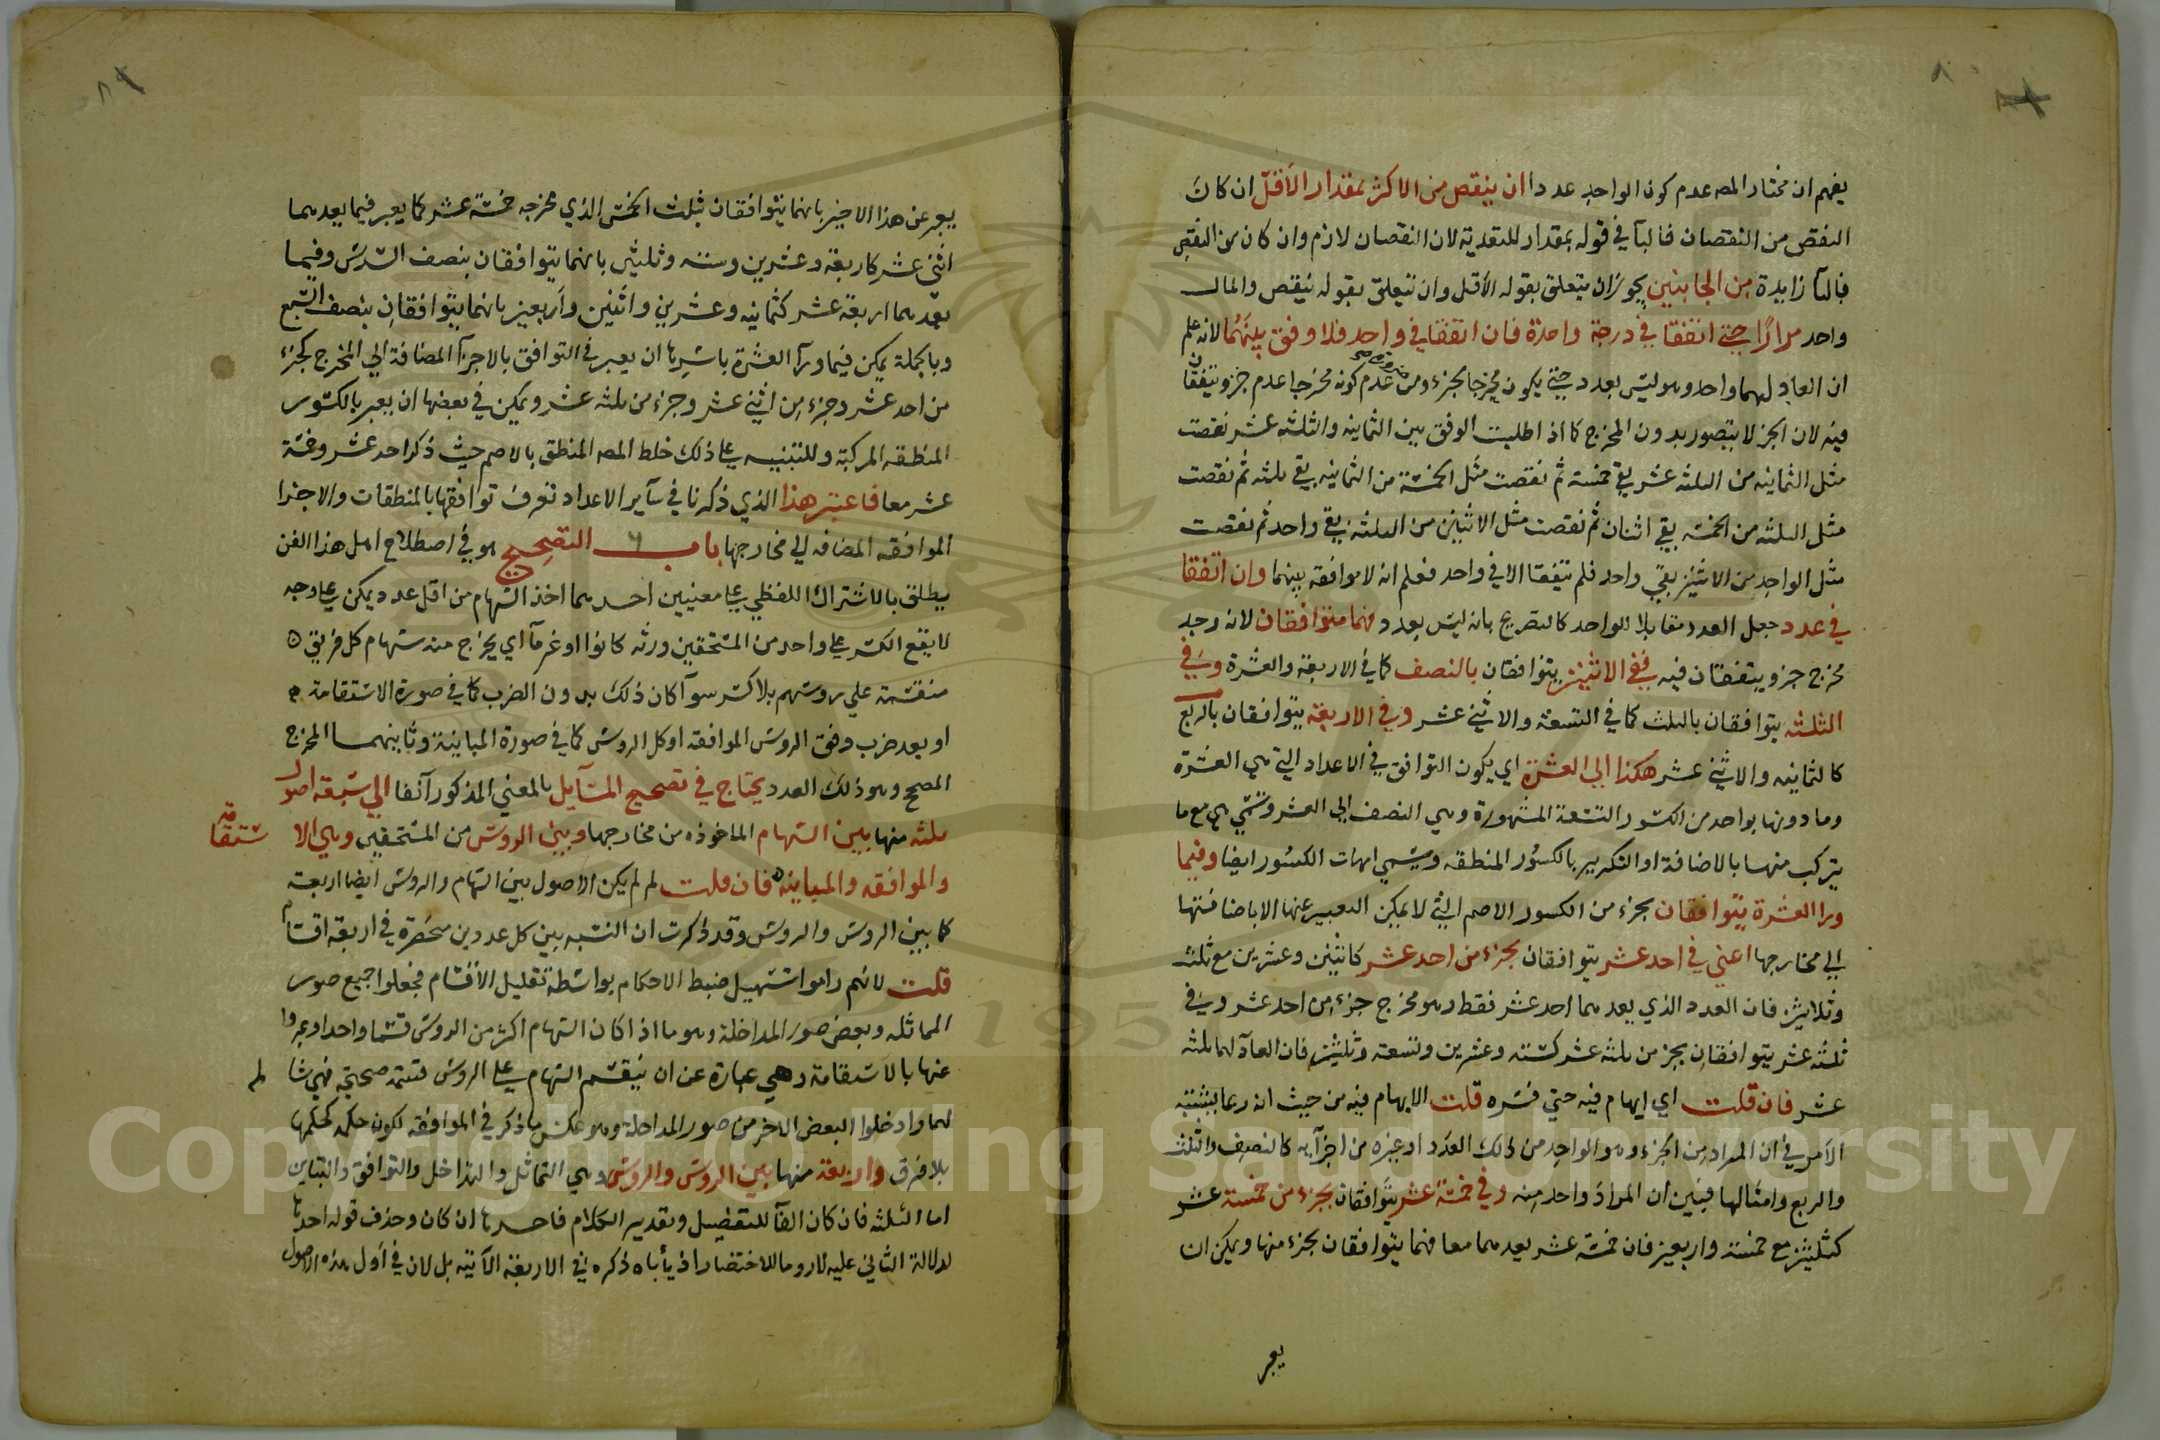 يفهم ان مختار المصـ عدم كون الواحد عددا ان ينقص من الاكثر بمقدار الاقل ان كان
النقص من النقصان فالبآ في قوله بمقدار للتعدية لان النقصان لازم وان كان من النقص
فالبآ زايدة من الجانبين يجوز ان يتعلق بقوله الاقل وان تتعلق بقوله ينقص والمال
واحد مرارًا حتى اتفقا في درجة واحدة فان اتفقا في واحد فلا وفق بينهما لانه علم
ان العاد لهما واحد وهو ليس بعدد حتى يكون مخرجا لجزء ومن عدم كونه مخرجا عدم جزو يتفقان
فيه لان الجز لا يتصور بدون المخرج كما اذ اطلبت الوفق بين الثمانيه والثلثه عشر نقصت
مثل الثمانيه من الثلثه عشر بقي خمسة ثم نقصت مثل الخمسة من الثمانيه بقي ثلثه ثم نقصت
مثل الثلثه من الخمسه بقي اثنان ثم نقصت مثل الاثنين من الثلثه بقي واحد ثم نقصت
مثل الواحد من الاثنين بقي واحد فلم يتفقا الا في واحد فعلم انه لا موافقه بينهما وان اتفقا
في عدد جعل العدد مقابلا للواحد كالتصريح بانه ليس بعدد فهما متوافقان لانه وجد
مخرج جزو يتفقان فيه ففي الاثنين يتوافقان بالنصف كما في الاربعة والعشرة وفي
الثلثه يتوافقان بالثلث كما في التسعة والاثني عشر وفي الاربعة يتوافقان بالربع
كالثمانيه والاثني عشر هكذا الى العشرة اي يكون التوافق في الاعداد التي هي العشرة
وما دونها بواحد من الكسور التسعة المشهورة وهي النصف الى العشر وتسمى هي مع ما
يتركب منها بالاضافة او التكرير بالكسور المنطقه وتسمى امهات الكسور ايضا وفيما
ورا العشرة يتوافقان بجزء من الكسور الاصم التي لا يمكن التعبير عنها الا باضافتها
الى مخارجها اعني في احد عشر يتوافقان بجزء من احد عشر كاثنين وعشرين مع ثلثه
وثلاثين فان العدد الذي يعدهما احد عشر فقط وهو مخرج جزء من احد عشر وفي
ثلثه عشر يتوافقان بجزء من ثلثه عشر كستة وعشرين وتسعة وثلثين فان العاد لهما ثلثه
عشر فان قلت اي ايهام فيه حتى فسره قلت الايهام فيه من حيث انه ربما يشتبه
الامر في ان المراد من الجزء وهو الواحد من ذلك العدد او غيره من اجزآيه كالنصف والثلث
والربع وامثالها فبين ان المراد واحد منه وفي خمسة عشر يتوافقان بجزء من خمسة عشر
كثلثين مع خمسة واربعين فان خمسة عشر يعدهما معا فهما يتوافقان بجزء منها ويمكن ان
يعبر
يعبر عن هذا الاخير بانهما يتوافقان بثلث الخمس الذي مخرجه خمسة عشر كما يعبر فيما يعدهما
اثني عشر كاربعة وعشرين وستة وثلثين بانهما يتوافقان بنصف السدس وفيما
يعدهما اربعة عشر كثمانيه وعشرين واثنين واربعين بانهما يتوافقان بنصف السبع
وبالجملة يمكن فيما ورآ العشرة باسرها ان يعبر في التوافق بالاجزآ المضافة الى المخرج كجزء
من احد عشر وجزء من اثني عشر وجزء من ثلثه عشر ويمكن في بعضها ان يعبر بالكسور
المنطقه المركبة وللتنبيه على ذلك خلط المصـ المنطق بالاصم حيث ذكر احد عشر وخمسة
عشر معا فاعتبر هذا الذي ذكرنا في سآير الاعداد تعرف توافقها بالمنطقات والاجزا
الموافقه المضافه الى مخارجها باب التصحيح هو في اصطلاح اهل هذا الفن
يطلق بالاشتراك اللفظي على معنيين احدهما اخذ السهام من اقل عدد يمكن على وجه
لا يقع الكسر على واحد من المستحقين ورثه كانوا او غرمآ اي يخرج منه سهام كل فريق
منقسمة على روسهم بلا كسر سوآ كان ذلك بدون الضرب كما في صورة الاستقامة
او بعد ضرب وفق الروس الموافقه او كل الروس كما في صورة المباينة وثانيهما المخرج
المصحح وهو ذلك العدد يحتاج في تصحيح المسآيل بالمعني المذكور آنفا الى سبعة اصول
ثلثه منها بين السهام الماخوذه من مخارجها وبين الروس من المستحقين وهي الا ستقامة
والموافقه والمباينه فان قلت لم لم يكن الاصول بين السهام والروس ايضا اربعة
كما بين الروس والروس وقد ذكرت ان النسبه بين كل عددين منحصرة في اربعة اقسام
قلت لانهم راموا تسهيل ضبط الاحكام بواسطة تقليل الاقسام فجعلوا جميع صور
المماثله وبعض صور المداخلة وهو ما اذا كان السهام اكثر من الروس قسما واحدا وعبروا
عنها بالاستقامة وهي عبارة عن ان ينقسم السهام على الروس قسمة صحيحة فهي شا لم
لهما وادخلوا البعض الاخر من صور المداخلة وهو عكس ما ذكر في الموافقه لكون حكمه كحكمها
بلا فرق واربعة منها بين الروس والروس وهي التماثل والتداخل والتوافق والتباين
اما الثلثه فان كان الفآ للتفصيل وتقدير الكلام فاحدها ان كان وحذف قوله احدها
لدلالة الثاني عليه لا روما للاختصار اذ يأباه ذكره في الاربعة الآتيه بل لان في اول هذه الاصول
Copyright © King Saud University
1957